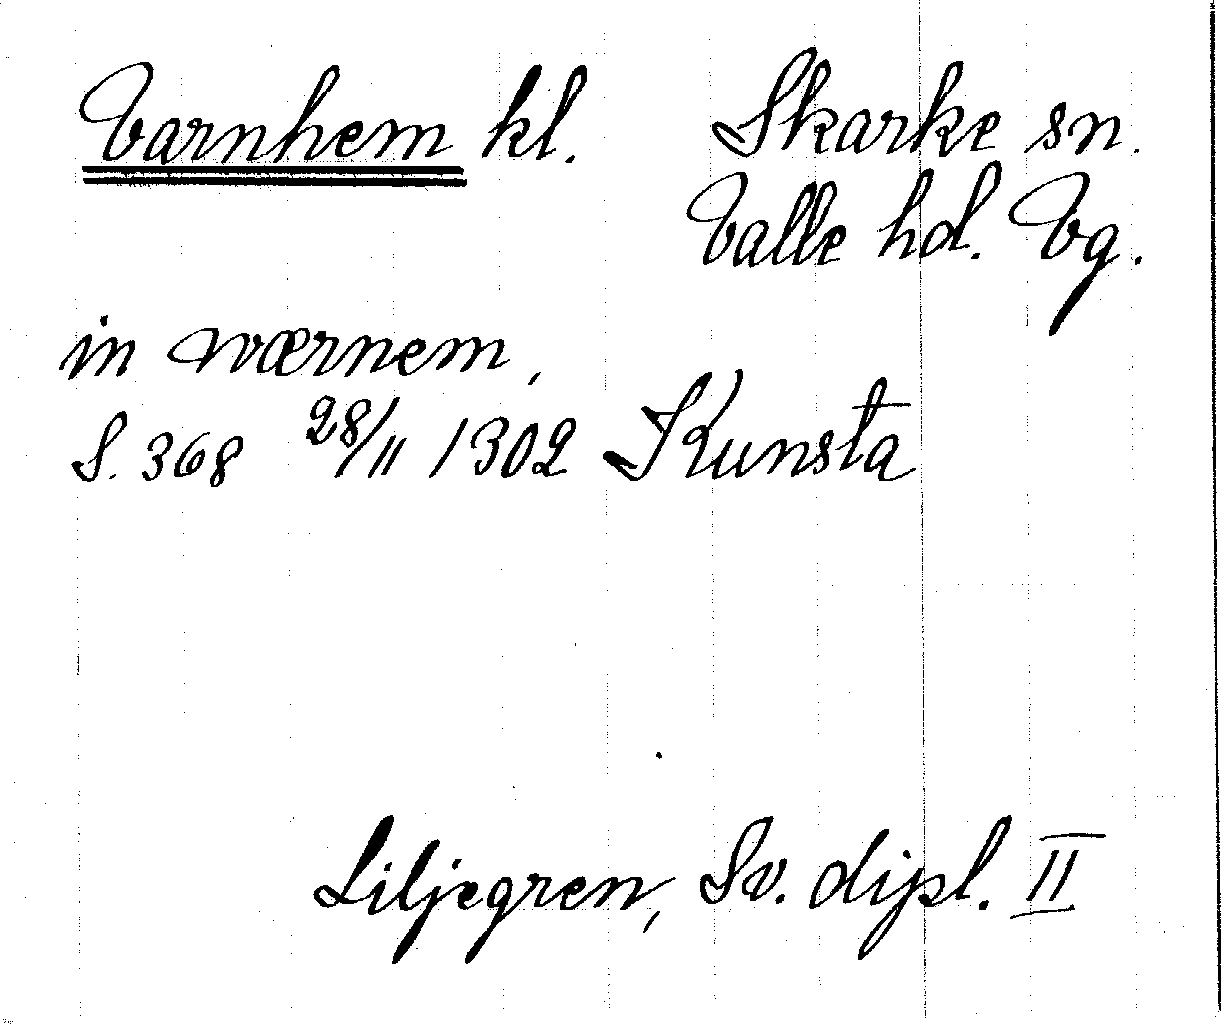 Varnhem kl. Skarke sn.
Valle hd. Vg.
in wærnem,
S. 368 28/11 1302 Kunsta
Liljegren, Sv. dipl. II